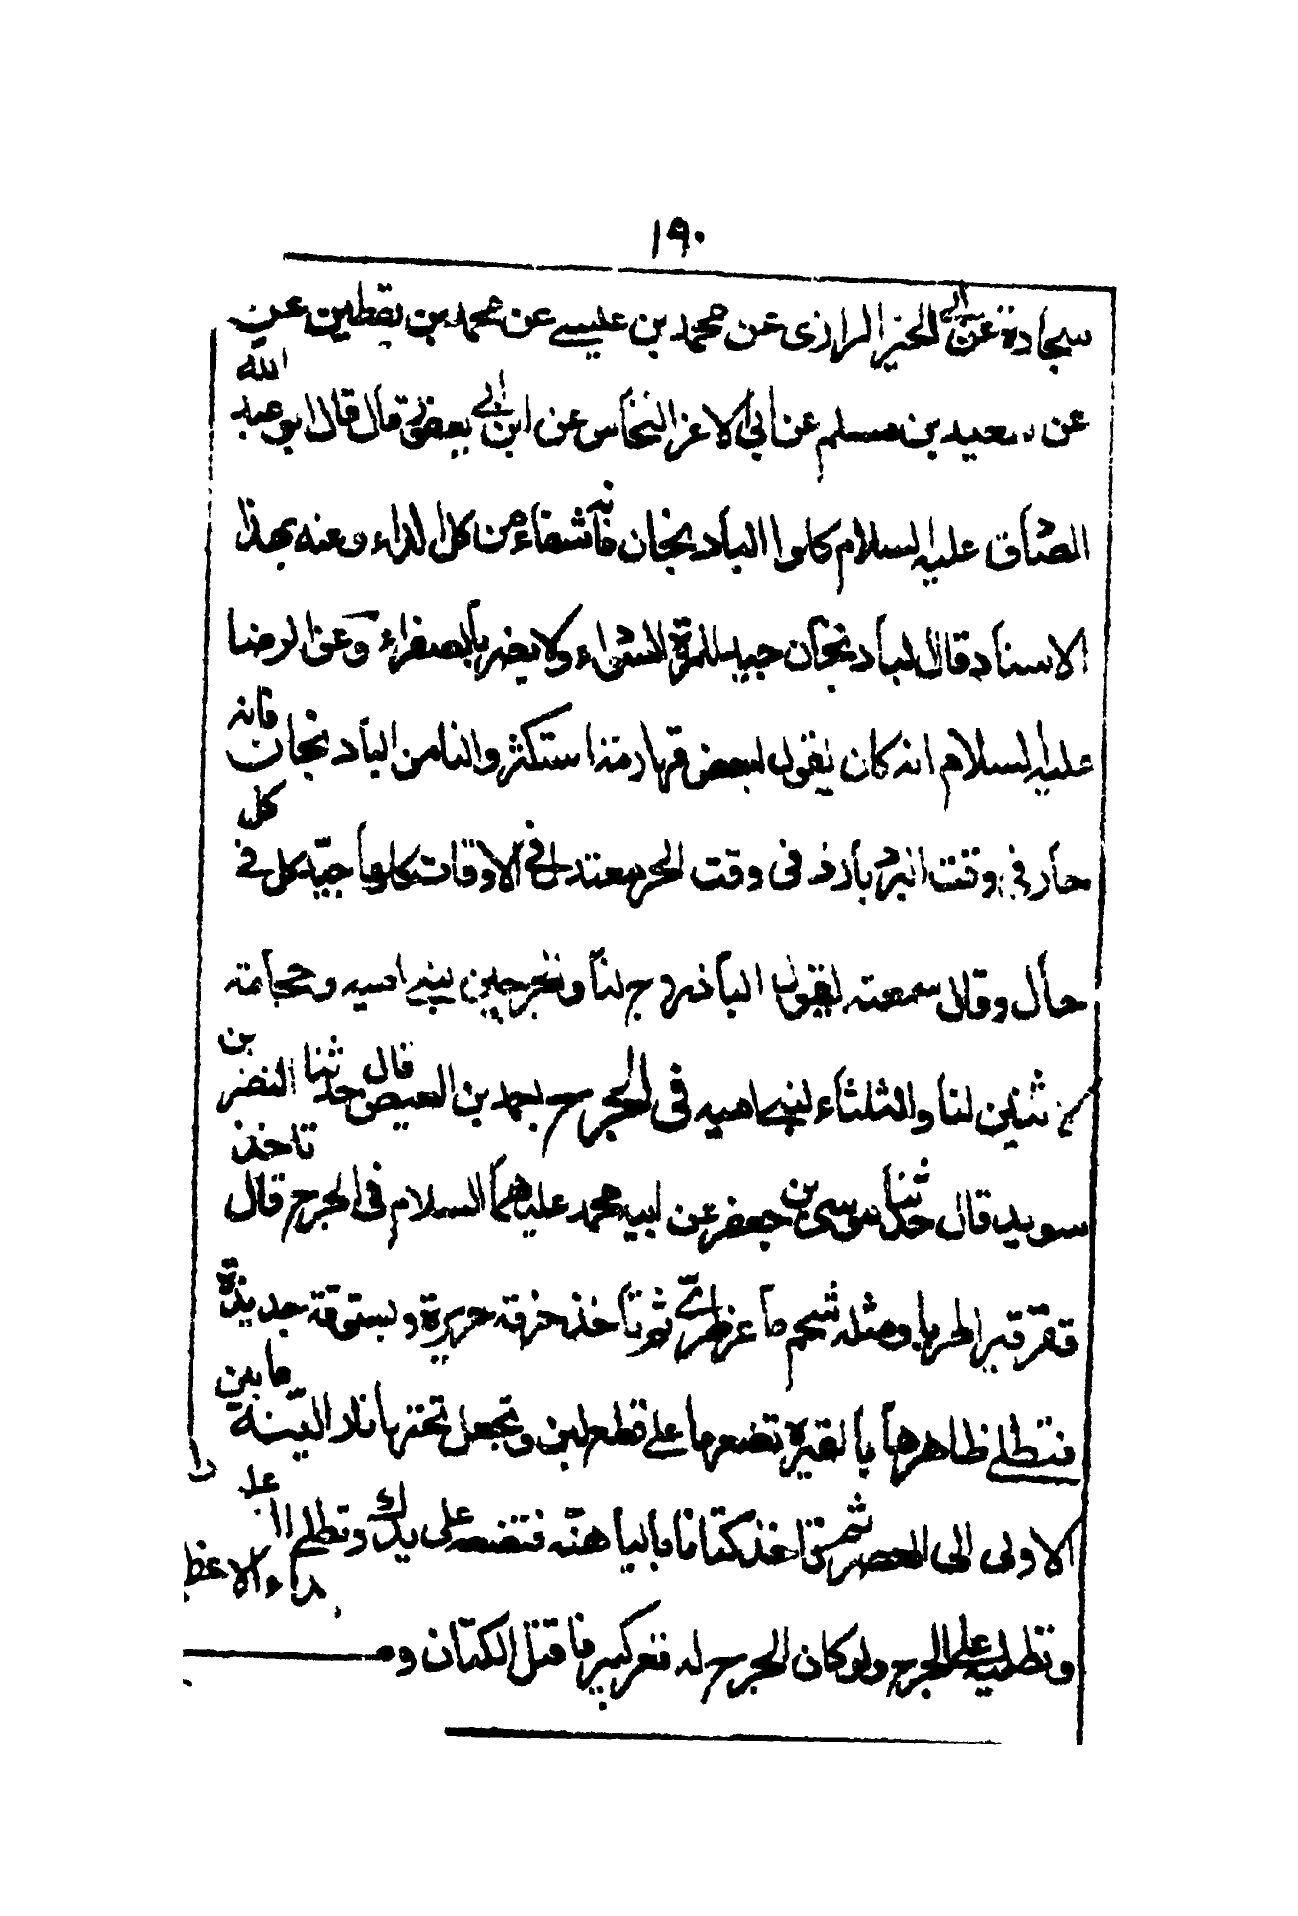 ١٩٠
سجادة عن ابي الخير الرازي عن محمد بن عيسى عن محمد بن يقطين عن
عن سعيد بن مسلم عن ابي الاغر النخاس عن ابن ابي يعفور قال قال ابو عبد الله
الصادق عليه السلام كلوا الباذنجان فانه شفاء من كل الداء وعنه بهذا
الاسناد قال الباذنجان جيد للمرة السوداء ولا يضر بالصفراء وعن الرضا
عليه السلام انه كان يقول لبعض قهارمته استكثروا لنا من الباذنجان فانه
حار في وقت البرد بارد في وقت الحر معتدل في الاوقات كلها جيد كل في كل
حال وقال سمعته يقول الباذروج لنا والجرجير لبني امية وحجامته
يوم اثنين لنا والثلثاء لبني امية في الجرح محمد بن العيص قال حدثنا النضر بن
سويد قال حدثنا موسى بن جعفر عن ابيه محمد عليهما السلام في الجرح قال تاخذ
قير ومثله شحم ماعز طري ثم تاخذ خرقة وبستوقة جديدة
فتطلي ظاهرها بالقير وتضعها على قطع لبن وتجعل تحتها نارا لينة ما بين
الاولى الى العصر ثم تاخذ كتانا باليا فتضعه على يدك وتطلي على
وتطليه على الجرح ولو كان الجرح له قعر كبير فافتل الكتان